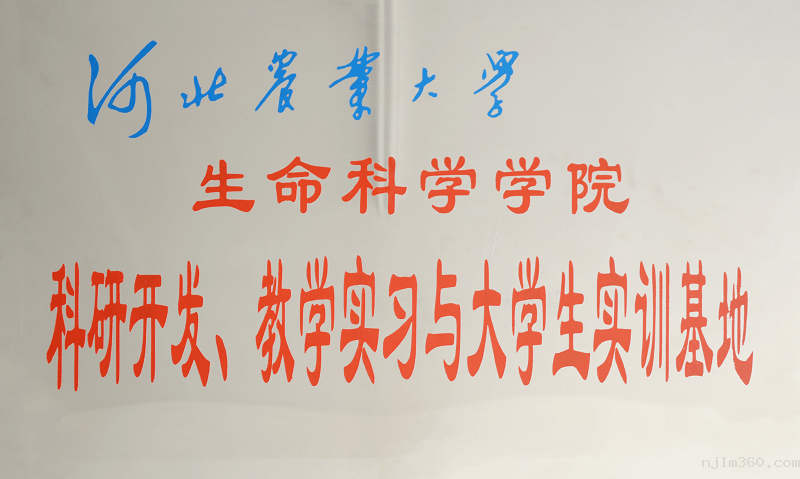 河北农業大学
生命科学学院
科研开发、教学实习与大学生实训基地
njlm360.com